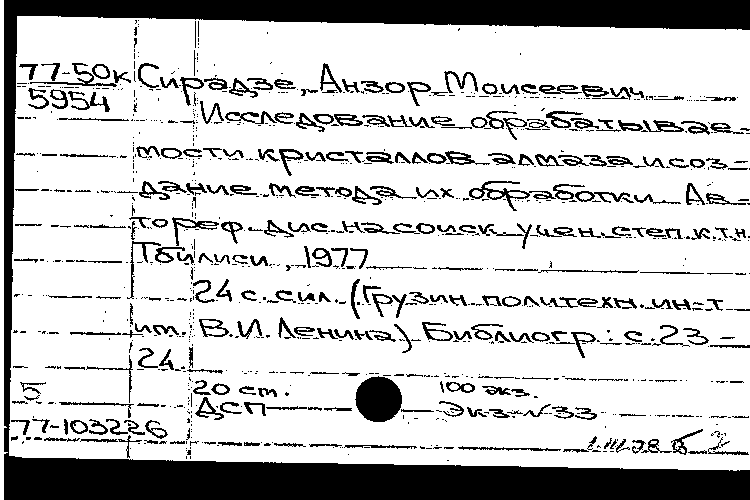 77-50к Сирадзе, Анзор Моисеевич
5954
Исследование обрабатывае-
мости кристаллов алмаза и соз-
дание метода их обработки Ав-
тореф. дис. на соиск учен. степ. к.т.н.
Тбилиси, 1977
24 с. с ил. (Грузин политехн. ин-т
им. В.И. Ленина) Библиогр.: с. 23-
24.
5 20 ст. 100 экз.
ДСП Экз. N33
77-103226
1.III.78